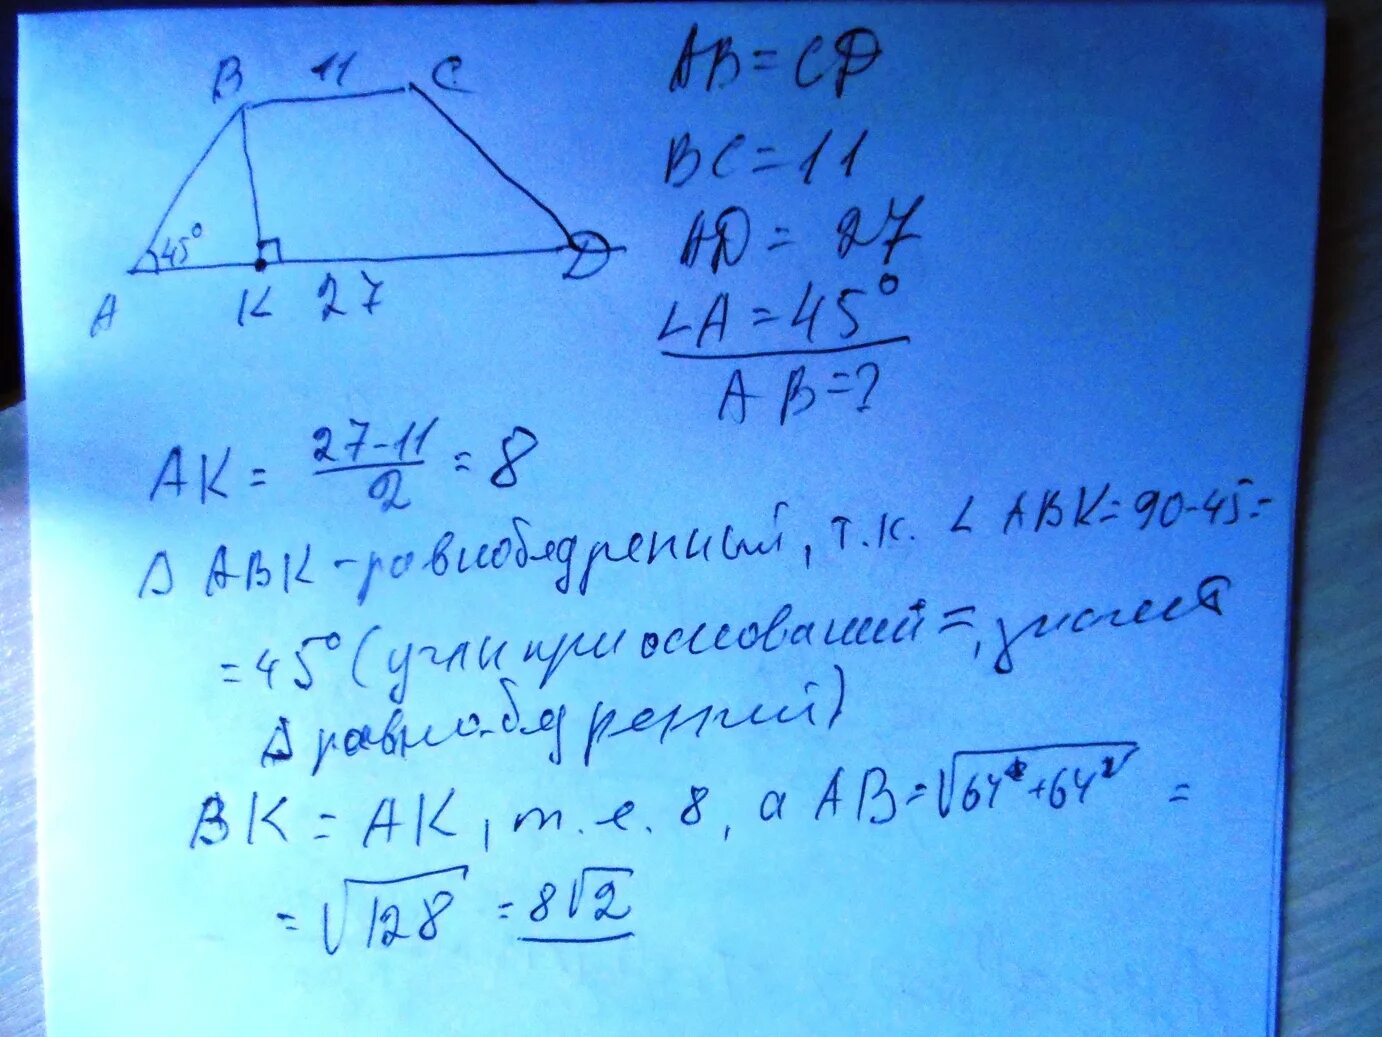 B 11 C
45°
A K 27 D
AB = CD
BC = 11
AD = 27
∠A = 45°
AB = ?
AK = (27-11)/2 = 8
Δ ABK - равнобедренный, т.к. ∠ ABK = 90-45 =
= 45° (углы при основании =, значит
Δ равнобедренный)
BK = AK, т.е. 8, а AB = √(64²+64²) =
= √128 = 8√2